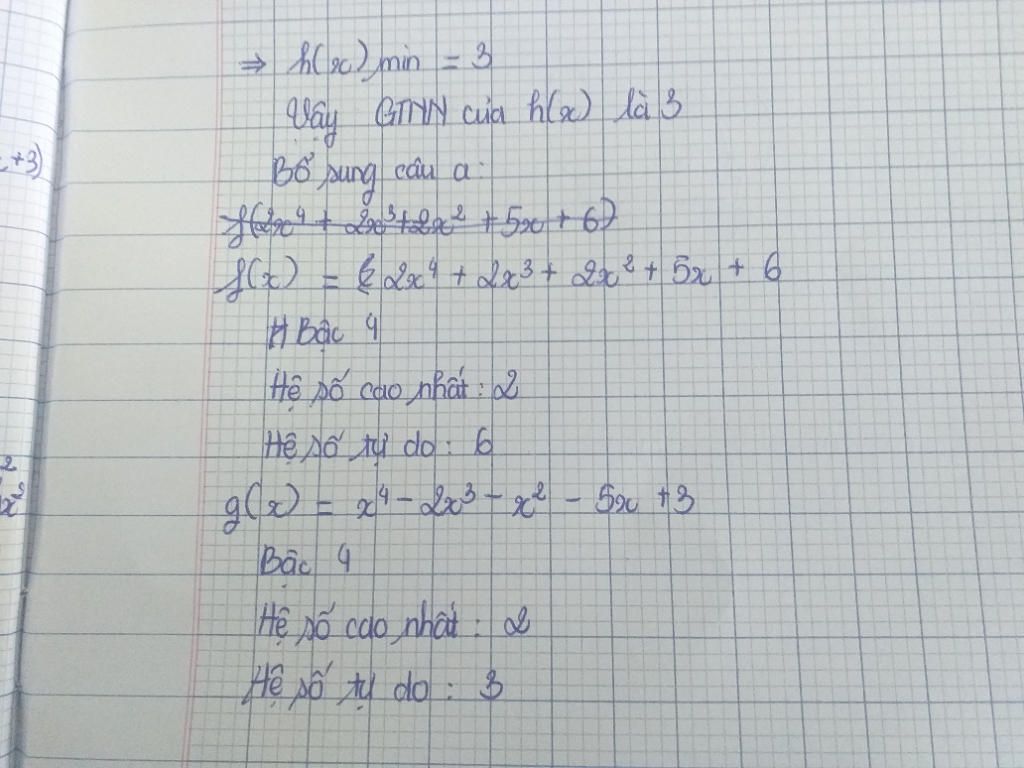 ⇒ h(x) min = 3
Vậy GTNN của h(x) là 3
x+3)
Bổ sung câu a:
f(2x⁴ + 2x³+2x² + 5x + 6)
f(x) = 2x⁴ + 2x³ + 2x² + 5x + 6
Bậc 4
Hệ số cao nhất: 2
Hệ số tự do: 6
2
x²
g(x) = x⁴ - 2x³ - x² - 5x +3
Bậc 4
Hệ số cao nhất: 2
Hệ số tự do: 3